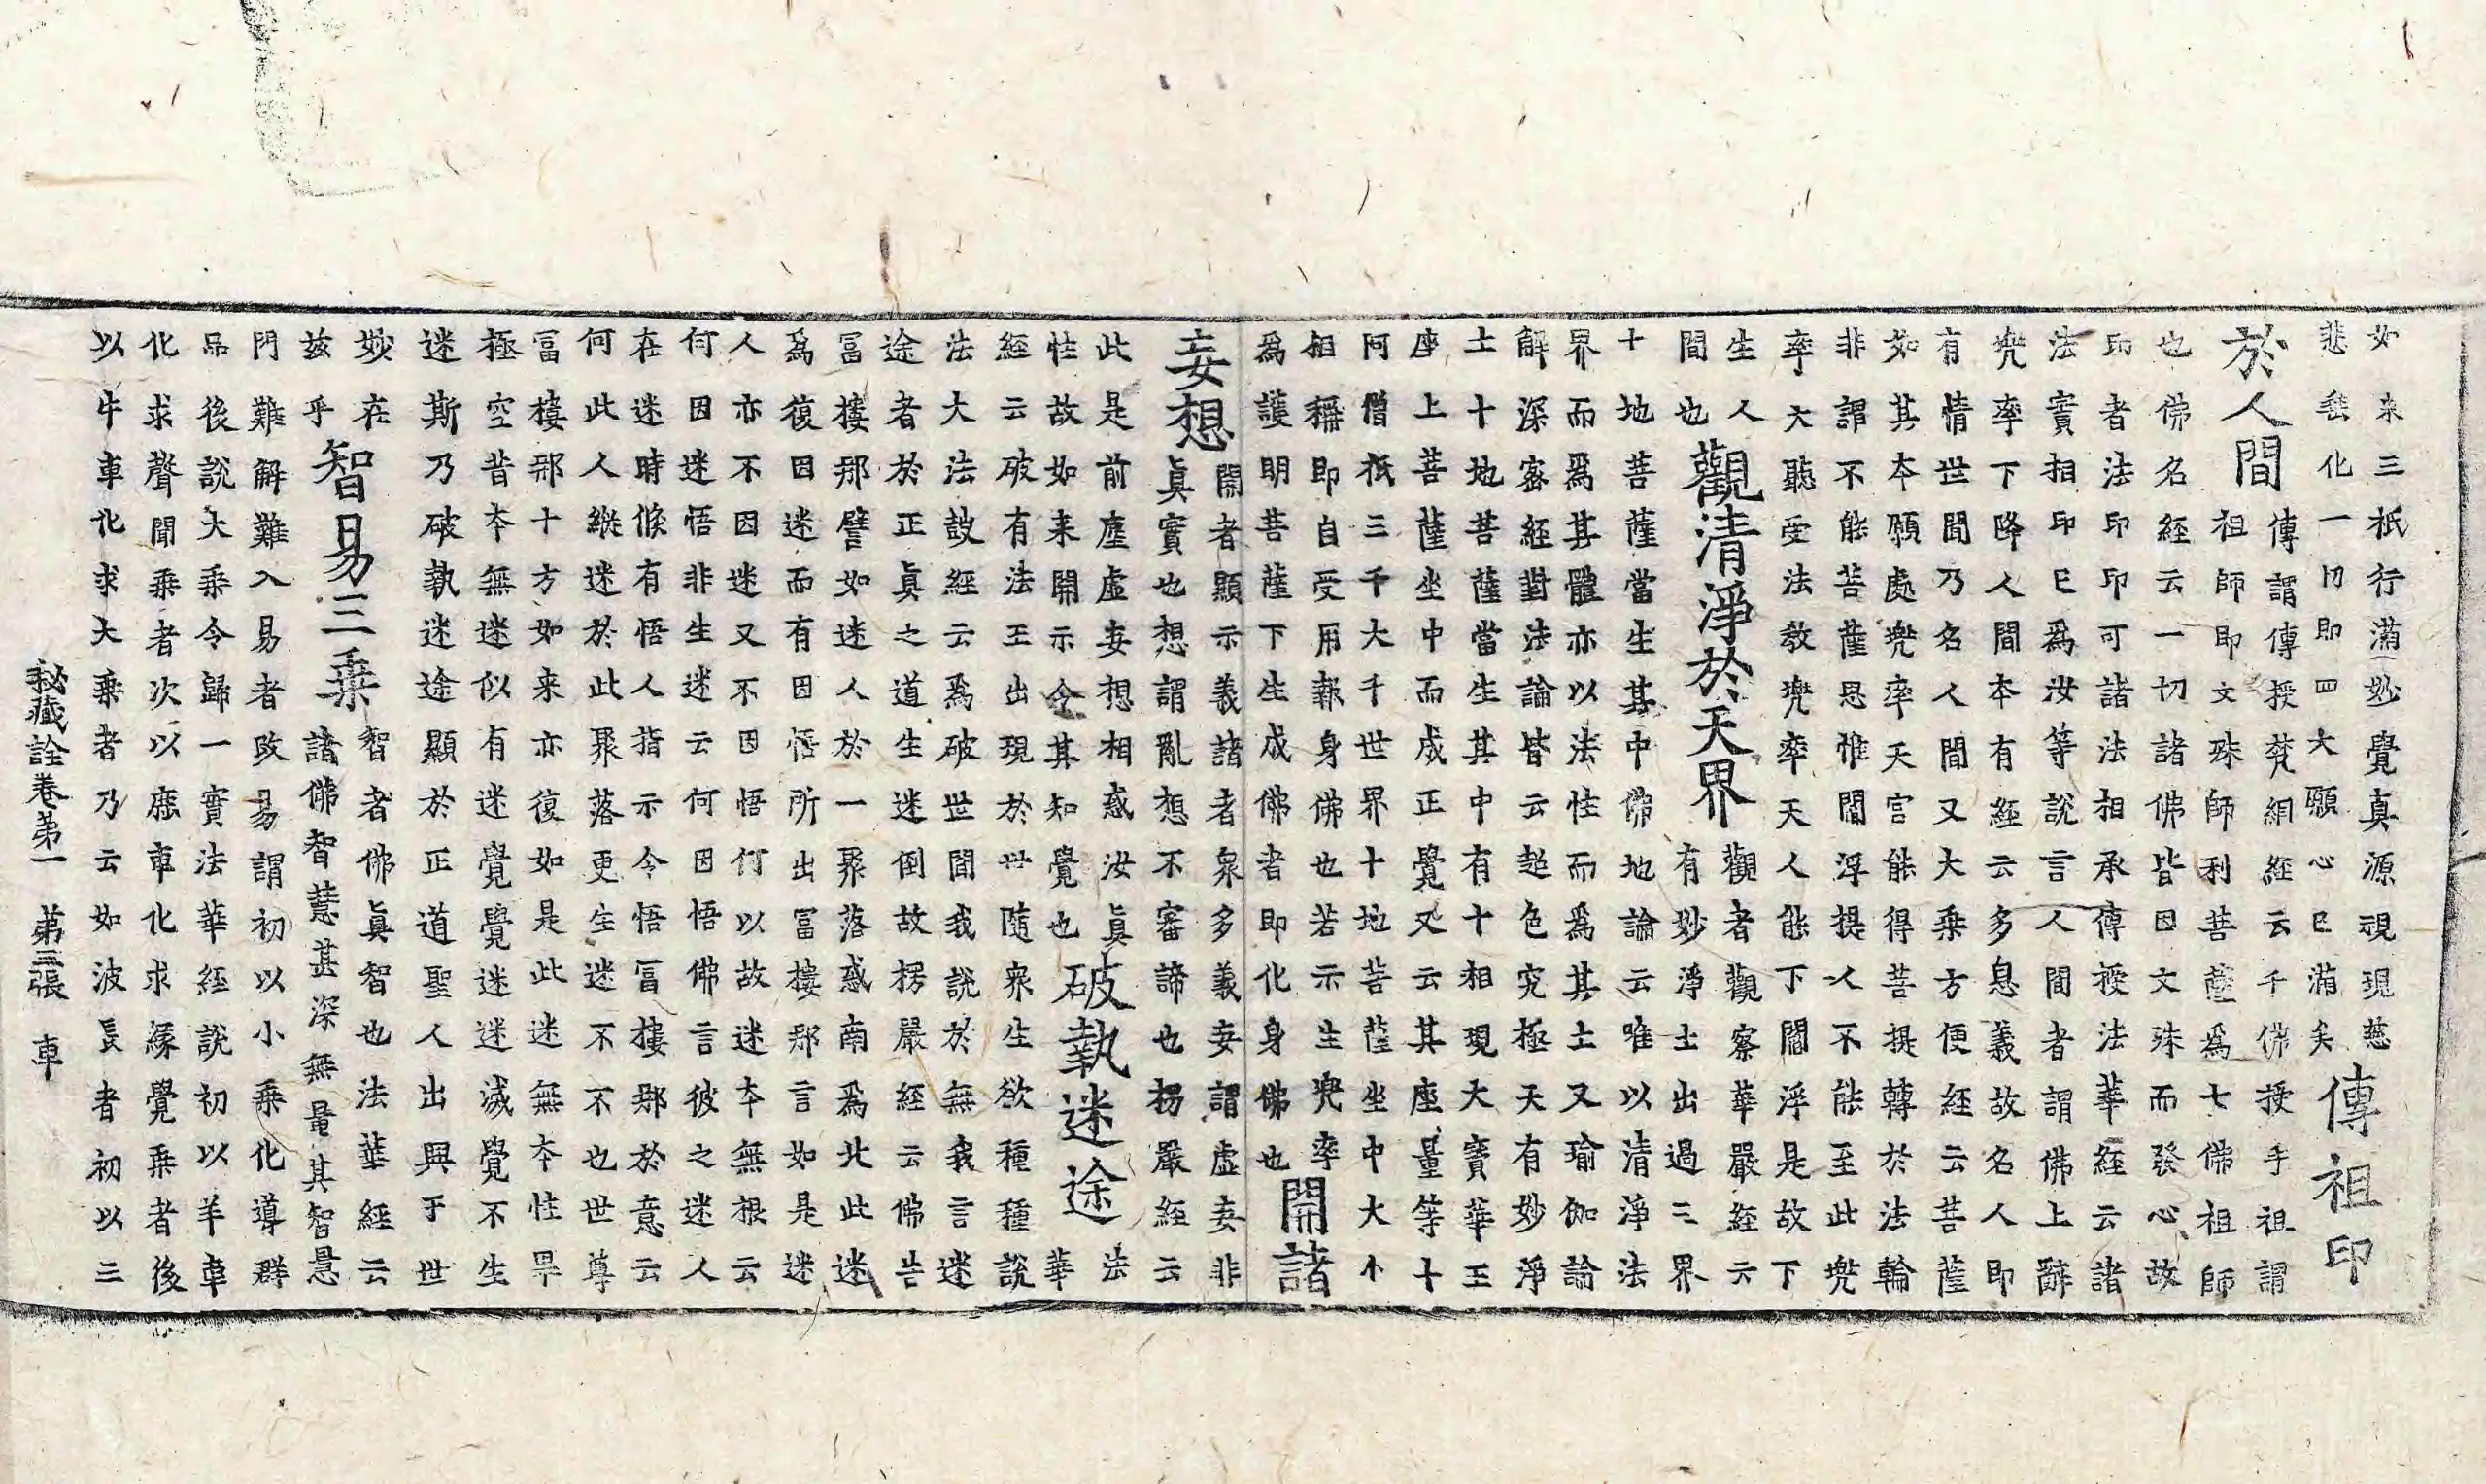 如來三祇行滿妙覺真源視現慈
悲垂化一切即四大願心已滿矣傳祖印
於人間傳謂傳授梵網經云千佛授手祖謂
祖師即文殊師利菩薩為七佛祖師
也佛名經云一切諸佛皆因文殊而發心故
印者法印印可諸法相承傳授法華經云諸
法實相印已為汝等說言人間者謂佛上辭
兜率下降人間本有經云多息義故名人即
有情世間乃名人間又大乘方便經云菩薩
如其本願處兜率天宮能得菩提轉於法輪
非謂不能菩薩思惟閻浮提人不能至此兜
率天聽受法教兜率天人能下閻浮是故下
生人間也觀清淨於天界觀者觀察華嚴經云
有妙淨土出過三界
十地菩薩當生其中佛地論云唯以清淨法
界而為其體亦以法性而為其土又瑜伽論
解深密經對法論皆云超色究極天有妙淨
土十地菩薩當生其中有十相現大寶華王
座上菩薩坐中而成正覺又云其座量等十
阿僧祇三千大千世界十地菩薩坐中大小
相稱即自受用報身佛也若示生兜率
為護明菩薩下生成佛者即化身佛也開諸
妄想開者顯示義諸者眾多義妄謂虛妄非
真實也想謂亂想不審諦也楞嚴經云
此是前塵虛妄想相惑汝真
性故如来開示令其知覺也破執迷途法華
經云破有法王出現於世隨眾生欲種種說
法大法故經云為破世間我說於無我言迷
途者於正真之道生迷倒故楞嚴經云佛告
富樓那譬如迷人於一聚落惑南為北此迷
為復因迷而有因悟所出富樓那言如是迷
人亦不因迷又不因悟何以故迷本無根云
何因迷悟非生迷云何因悟佛言彼之迷人
在迷時倏有悟人指示令悟富樓那於意云
何此人縱迷於此聚落更生迷不不也世尊
富樓那十方如来亦復如是此迷無本性畢
極空昔本無迷似有迷覺覺迷迷滅覺不生
迷斯乃破執迷途顯於正道聖人出興于世
妙在茲乎智易三乘智者佛真智也法華經云
諸佛智慧甚深無量其智慧
門難解難入易者改易謂初以小乘化導群
品後說大乘令歸一實法華經說初以羊車
化求聲聞乘者次以鹿車化求緣覺乘者後
以牛車化求大乘者乃云如彼長者初以三
秘藏詮卷第一　第三張　車